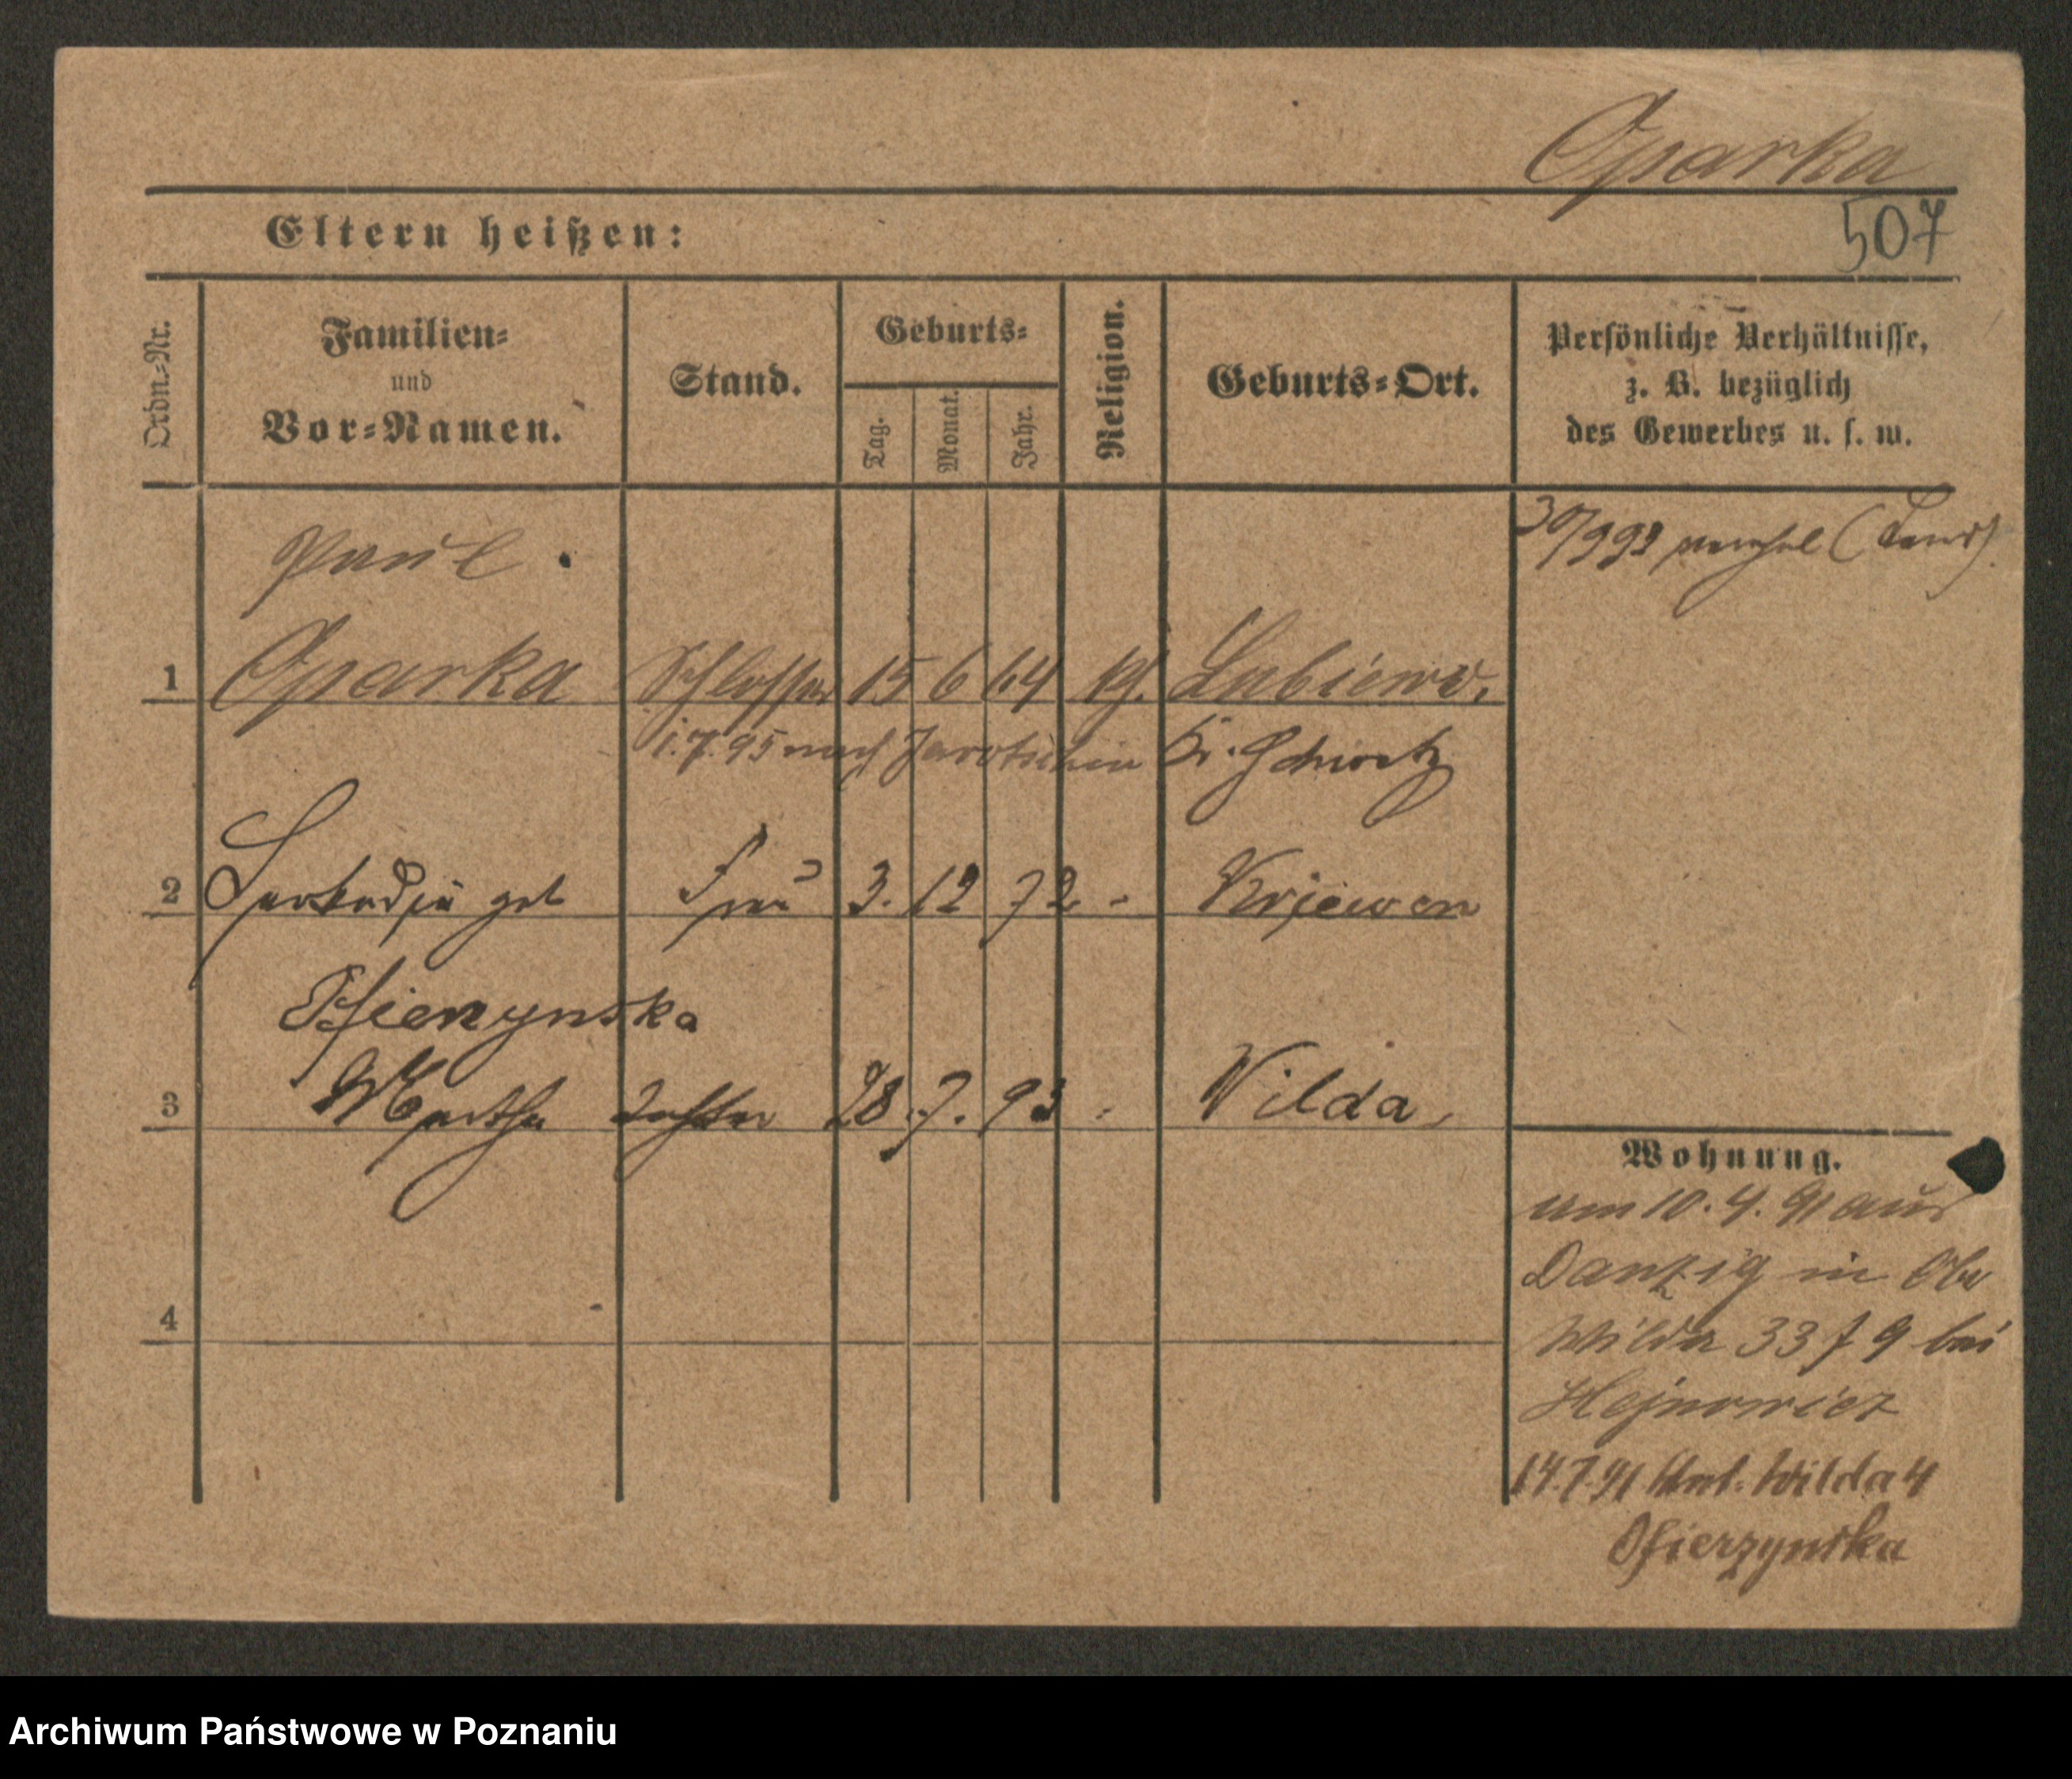 Oparka
507
Eltern heißen:
Ordn.-Nr.
Familien-
und
Vor-Namen.
Stand.
Geburts-
Tag.
Monat.
Jahr.
Religion.
Geburts-Ort.
Persönliche Verhältnisse,
z. B. bezüglich
des Gewerbes u. s. w.
Paul
1 Oparka Schlosser 15 6 64 Lubiewo.
1.7.95 nach Jarotschin Kr. Schwetz
2 geb Frau 3. 12 72 - Kriewen
Ofierzynska
3 Martha Tochter 28. 7. 93 - Wilda
4
Wohnung.
am 10. 4. 91 aus
Danzig in Ober
Wilda 33 f 9 bei
Hejnowicz
14.7.91 Unt. Wilda 4
Ofierzynska
Archiwum Państwowe w Poznaniu